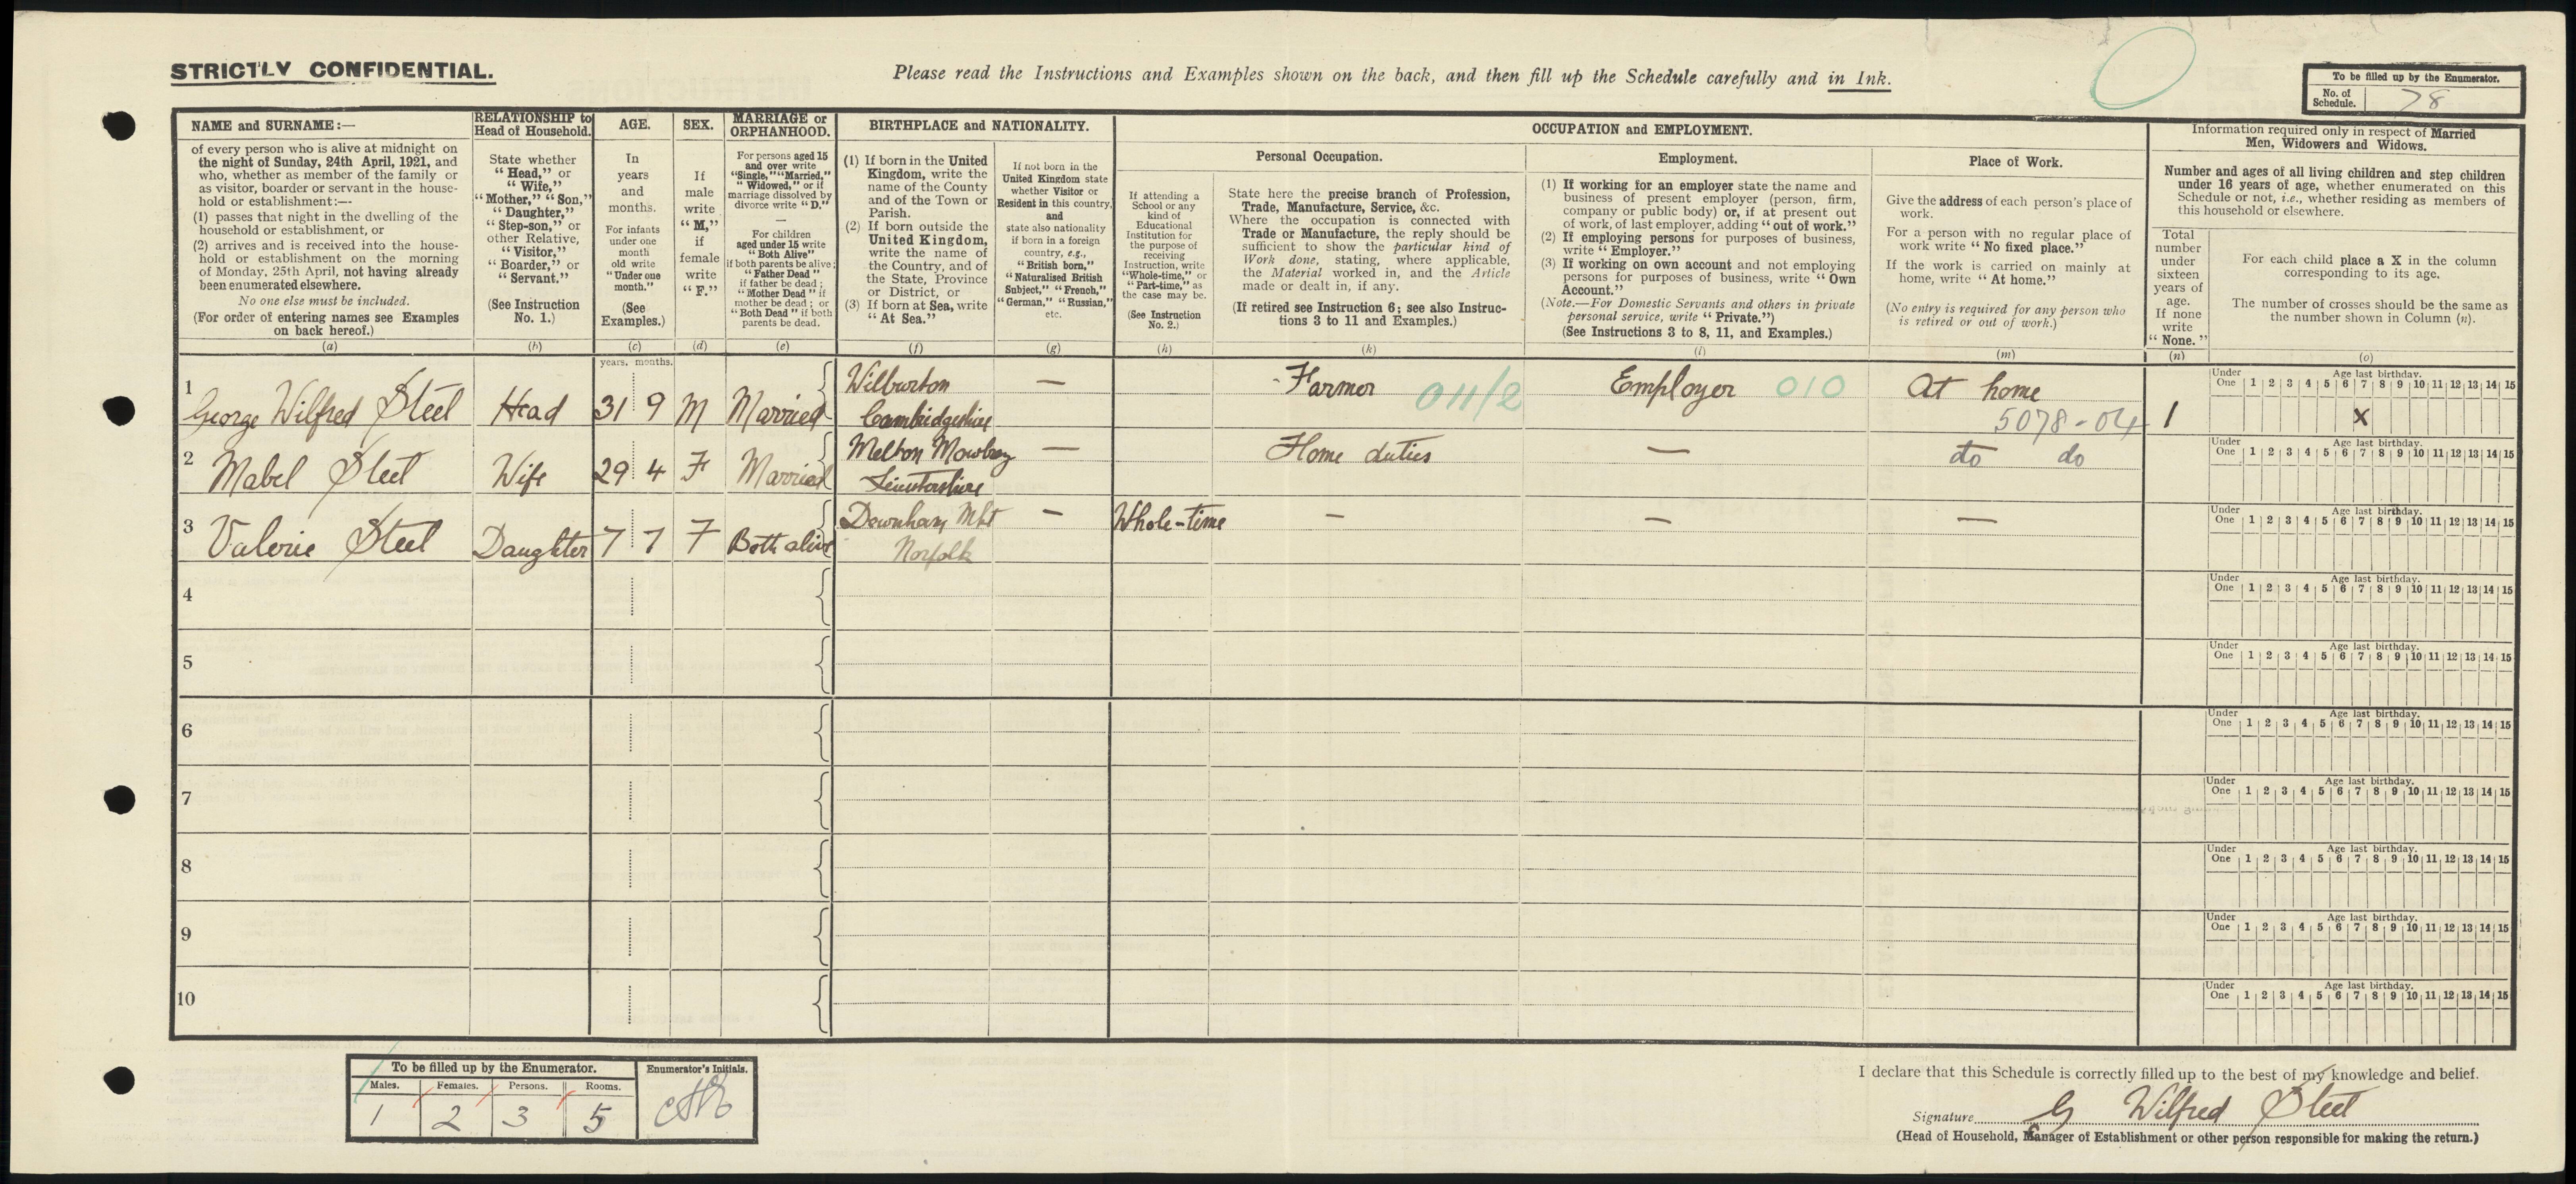 STRICTLY CONFIDENTIAL.
Please read the Instructions and Examples shown on the back, and then fill up the Schedule carefully and in Ink.
To be filled up by the Enumerator.
No. of Schedule. 78
NAME and SURNAME:—
of every person who is alive at midnight on
the night of Sunday, 24th April, 1921, and
who, whether as member of the family or
as visitor, boarder or servant in the house-
hold or establishment:—
(1) passes that night in the dwelling of the
household or establishment, or
(2) arrives and is received into the house-
hold or establishment on the morning
of Monday, 25th April, not having already
been enumerated elsewhere.
No one else must be included.
(For order of entering names see Examples
on back hereof.)
(a)
RELATIONSHIP to
Head of Household.
State whether
"Head," or
"Wife,"
"Mother," "Son,"
"Daughter,"
"Step-son," or
other Relative,
"Visitor,"
"Boarder," or
"Servant."
(See Instruction
No. 1.)
(b)
AGE.
In
years
and
months.
For infants
under one
month
old write
"Under one
month."
(See
Examples.)
(c)
SEX.
If
male
write
"M,"
if
female
write
"F."
(d)
MARRIAGE or
ORPHANHOOD.
For persons aged 15
and over write
"Single," "Married,"
"Widowed," or if
marriage dissolved by
divorce write "D."
—
For children
aged under 15 write
"Both Alive"
if both parents be alive;
"Father Dead"
if father be dead;
"Mother Dead" if
mother be dead; or
"Both Dead" if both
parents be dead.
(e)
BIRTHPLACE and NATIONALITY.
(1) If born in the United
Kingdom, write the
name of the County
and of the Town or
Parish.
(2) If born outside the
United Kingdom,
write the name of
the Country, and of
the State, Province
or District, or
(3) If born at Sea, write
"At Sea."
(f)
If not born in the
United Kingdom state
whether Visitor or
Resident in this country,
and
state also nationality
if born in a foreign
country, e.g.,
"British born,"
"Naturalised British
Subject," "French,"
"German," "Russian,"
etc.
(g)
OCCUPATION and EMPLOYMENT.
If attending a
School or any
kind of
Educational
Institution for
the purpose of
receiving
Instruction, write
"Whole-time," or
"Part-time," as
the case may be.
(See Instruction
No. 2.)
(h)
Personal Occupation.
State here the precise branch of Profession,
Trade, Manufacture, Service, &c.
Where the occupation is connected with
Trade or Manufacture, the reply should be
sufficient to show the particular kind of
Work done, stating, where applicable,
the Material worked in, and the Article
made or dealt in, if any.
(If retired see Instruction 6; see also Instruc-
tions 3 to 11 and Examples.)
(k)
Employment.
(1) If working for an employer state the name and
business of present employer (person, firm,
company or public body) or, if at present out
of work, of last employer, adding "out of work."
(2) If employing persons for purposes of business,
write "Employer."
(3) If working on own account and not employing
persons for purposes of business, write "Own
Account."
(Note.—For Domestic Servants and others in private
personal service, write "Private.")
(See Instructions 3 to 8, 11, and Examples.)
(l)
Place of Work.
Give the address of each person's place of
work.
For a person with no regular place of
work write "No fixed place."
If the work is carried on mainly at
home, write "At home."
(No entry is required for any person who
is retired or out of work.)
(m)
Information required only in respect of Married
Men, Widowers and Widows.
Number and ages of all living children and step children
under 16 years of age, whether enumerated on this
Schedule or not, i.e., whether residing as members of
this household or elsewhere.
Total
number
under
sixteen
years of
age.
If none
write
"None."
(n)
For each child place a X in the column
corresponding to its age.
The number of crosses should be the same as
the number shown in Column (n).
(o)
years. months.
1 George Wilfred Steel Head 31 9 M Married Wilburton Cambridgeshire — Farmer 011/2 Employer 010 At home 5078-04 1
Under One Age last birthday. 1 2 3 4 5 6 7 8 9 10 11 12 13 14 15
X
2 Mabel Steel Wife 29 4 F Married Melton Mowbray Leicestershire — Home duties — do do
Under One Age last birthday. 1 2 3 4 5 6 7 8 9 10 11 12 13 14 15
3 Valerie Steel Daughter 7 7 F Both alive Downham Mkt Norfolk — Whole-time — — —
Under One Age last birthday. 1 2 3 4 5 6 7 8 9 10 11 12 13 14 15
4
Under One Age last birthday. 1 2 3 4 5 6 7 8 9 10 11 12 13 14 15
5
Under One Age last birthday. 1 2 3 4 5 6 7 8 9 10 11 12 13 14 15
6
Under One Age last birthday. 1 2 3 4 5 6 7 8 9 10 11 12 13 14 15
7
Under One Age last birthday. 1 2 3 4 5 6 7 8 9 10 11 12 13 14 15
8
Under One Age last birthday. 1 2 3 4 5 6 7 8 9 10 11 12 13 14 15
9
Under One Age last birthday. 1 2 3 4 5 6 7 8 9 10 11 12 13 14 15
10
Under One Age last birthday. 1 2 3 4 5 6 7 8 9 10 11 12 13 14 15
To be filled up by the Enumerator.
Males. Females. Persons. Rooms.
1 2 3 5
Enumerator's Initials.
I declare that this Schedule is correctly filled up to the best of my knowledge and belief.
Signature G Wilfred Steel
(Head of Household, Manager of Establishment or other person responsible for making the return.)